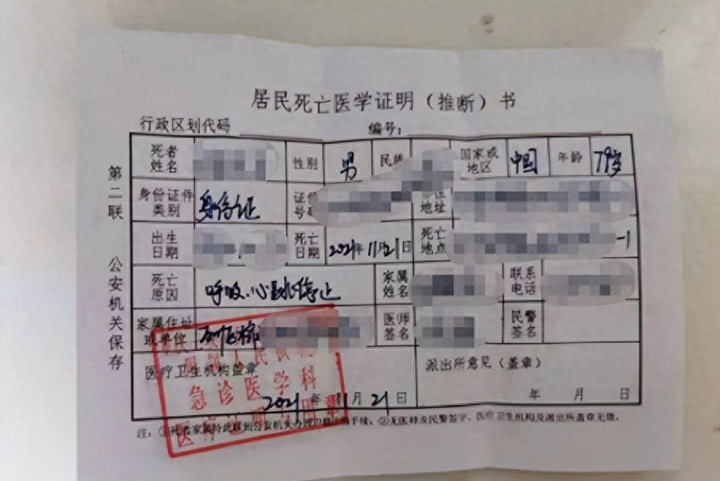 居民死亡医学证明（推断）书
行政区划代码 编号：
第二联 公安机关保存
死者姓名 性别 男 民族 国家或地区 中国 年龄 79岁
身份证件类别 身份证 证件号码 地址
出生日期 死亡日期 2021年11月21日 死亡地点 -1
死亡原因 呼吸、心跳停止 家属姓名 联系电话
家属住址或单位 医师签名 民警签名
医疗卫生机构盖章 派出所意见（盖章）
急诊医学科
2021年11月21日 年 月 日
注：②无医师及民警签字、医疗卫生机构及派出所盖章无效。